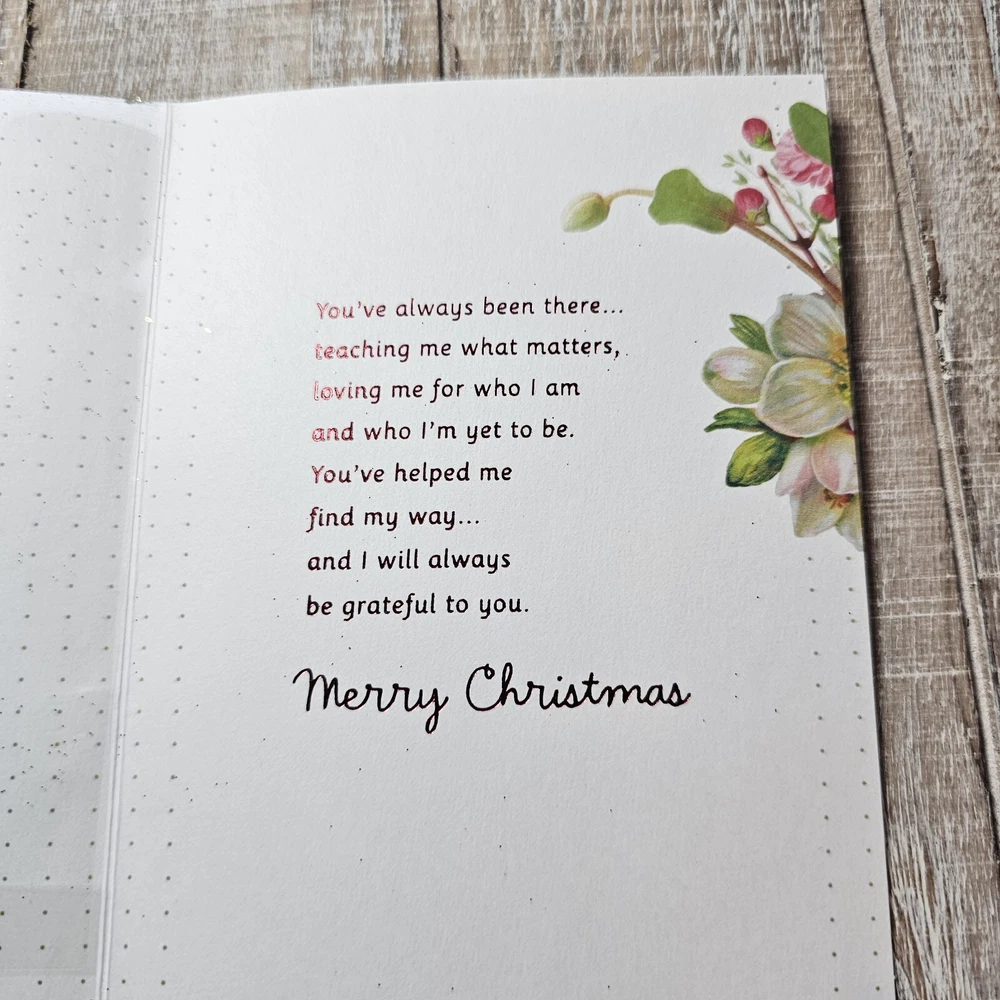 You've always been there...
teaching me what matters,
loving me for who I am
and who I'm yet to be.
You've helped me
find my way...
and I will always
be grateful to you.
Merry Christmas